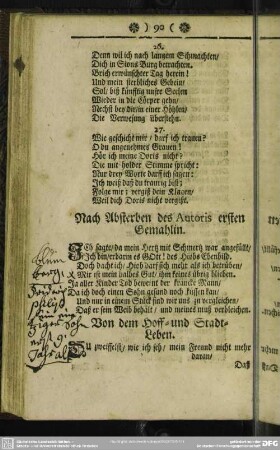 ) 90 (
26.
Denn wil ich nach langem Schmachten/
Dich in Sions Burg betrachten.
Brich erwünschter Tag herein!
Und mein sterbliches Gebein/
Sol/ biß künfftig unsre Seelen
Wieder in die Cörper gehn/
Nechst bey dir/in einer Höhlen/
Die Verwesung überstehn.
27.
Wie geschicht mir/ darf ich trauen?
O du angenehmes Grauen!
Hör ich meine Doris nicht?
Die mit holder Stimme spricht:
Nur drey Worte darff ich sagen:
Ich weiß daß du traurig bist;
Folge mir; vergiß dein Klagen/
Weil dich Doris nicht vergist.
Nach Absterben des Autoris ersten
Gemahlin.
ICh sagte/da mein Hertz mit Schmertz war angefüllt/
Ich bin/erbarm es GOtt! des Hiobs Ebenbild.
Doch dacht ich/ Hiob darff sich mehr als ich betrüben/
Wir ist mein halbes Gut/ ihm keines übrig blieben.
Ja aller Kinder Tod beweint der krancke Mann/
Da ich doch einen Sohn gesund noch küssen kan/
Und nur in einem Stück sind wir uns zu vergleichen/
Daß er sein Weib behält/ und meines muß verbleichen.
Von dem Hoff- und Stadt-
Leben.
DU zweiffelst/ wie ich seh/ mein Freund nicht mehr
daran/
Daß